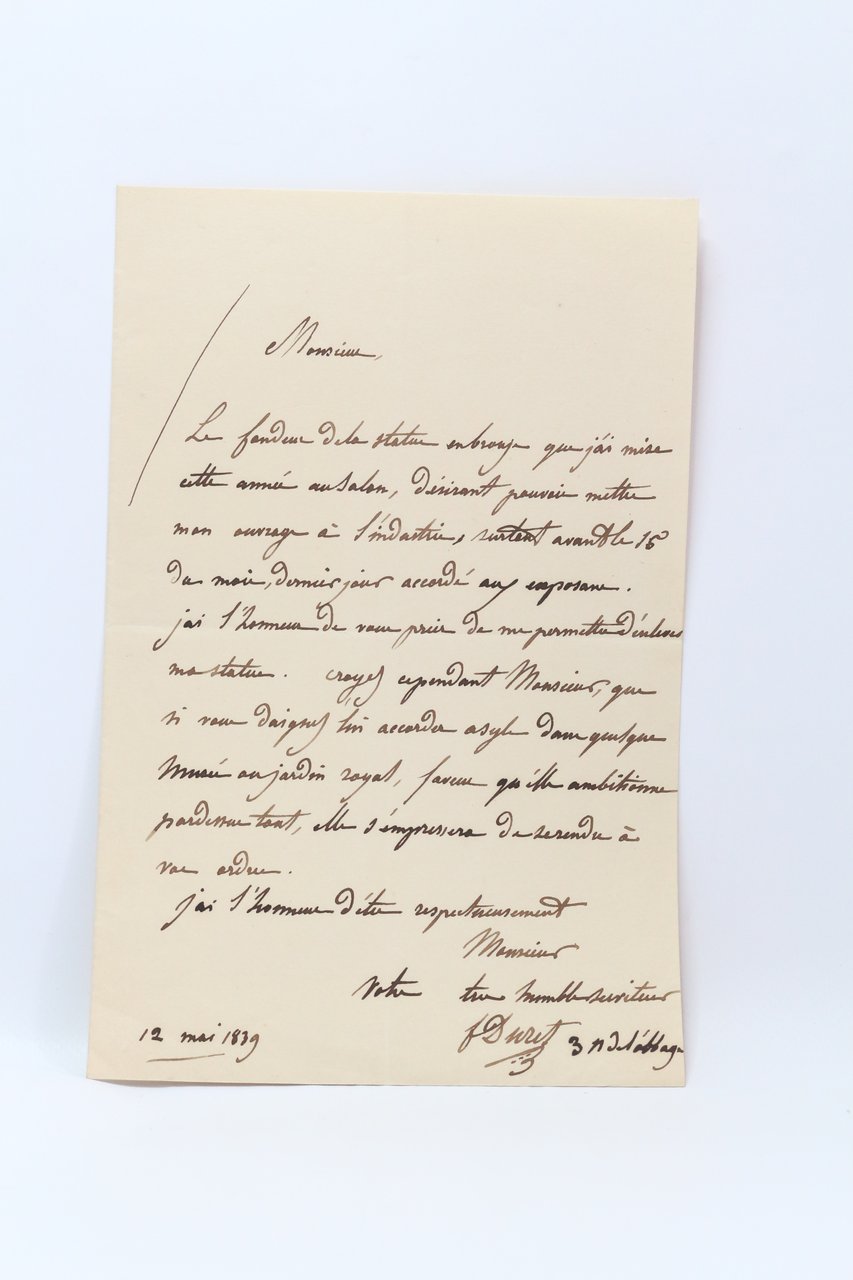 Monsieur,
Le fondeur dela statue enbronze que j'ai mise
cette année au Salon, désirant pouvoir mettre
mon ouvrage à l'industrie, surtout avant le 15
du mois, dernier jour accordé aux exposans.
j'ai l'honneur de vous prier de me permettre d'enlever
ma statue. croyez cependant Monsieur, que
si vous daignez lui accorder asyle dans quelque
Musée ou jardin royal, faveur qu'elle ambitionne
pardessus tout, elle s'empressera de se rendre à
vos ordres.
j'ai l'honneur d'être respectueusement
Monsieur
Votre très humble serviteur
12 mai 1839 f Duret 3 r de l'abbaye